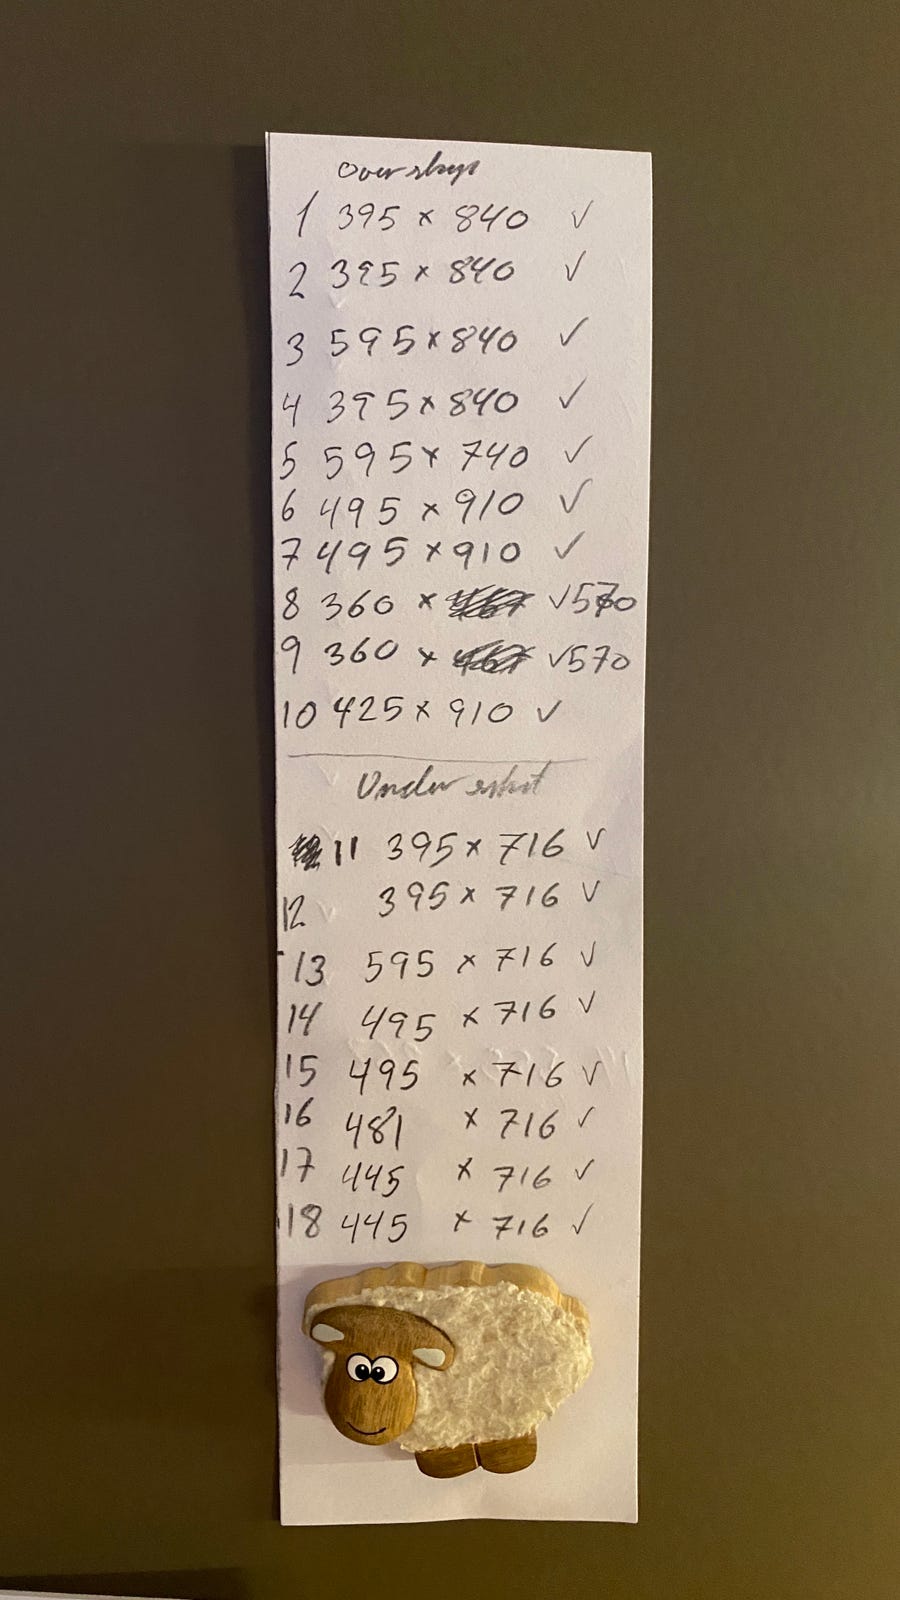 Overskap
1 395 x 840 ✓
2 395 x 840 ✓
3 595 x 840 ✓
4 395 x 840 ✓
5 595 x 740 ✓
6 495 x 910 ✓
7 495 x 910 ✓
8 360 x ✓ 570
9 360 x ✓ 570
10 425 x 910 ✓
Under
11 395 x 716 ✓
12 395 x 716 ✓
13 595 x 716 ✓
14 495 x 716 ✓
15 495 x 716 ✓
16 481 x 716 ✓
17 445 x 716 ✓
18 445 x 716 ✓